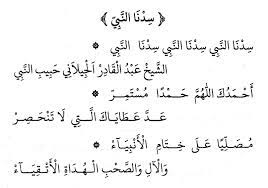 ﴿ سِدْنَا النَّبِيّ ﴾
سِدْنَا النَّبِي سِدْنَا النَّبِي سِدْنَا النَّبِي ❋
الشَّيْخُ عَبْدُ الْقَادِرْ الْجِيلَانِي حَبِيبِ النَّبِي
أَحْمَدُكَ اللّٰهُمَّ حَمْدًا مُسْتَمِرّ ❋
عَدَّ عَطَايَاكَ الَّتِي لَا تَنْحَصِرْ
مُصَلِّيًا عَلَى خِتَامِ الْأَنْبِيَآءْ ❋
وَالْآلِ وَالصَّحْبِ الْهُدَاةِ الْأَتْقِيَآءْ